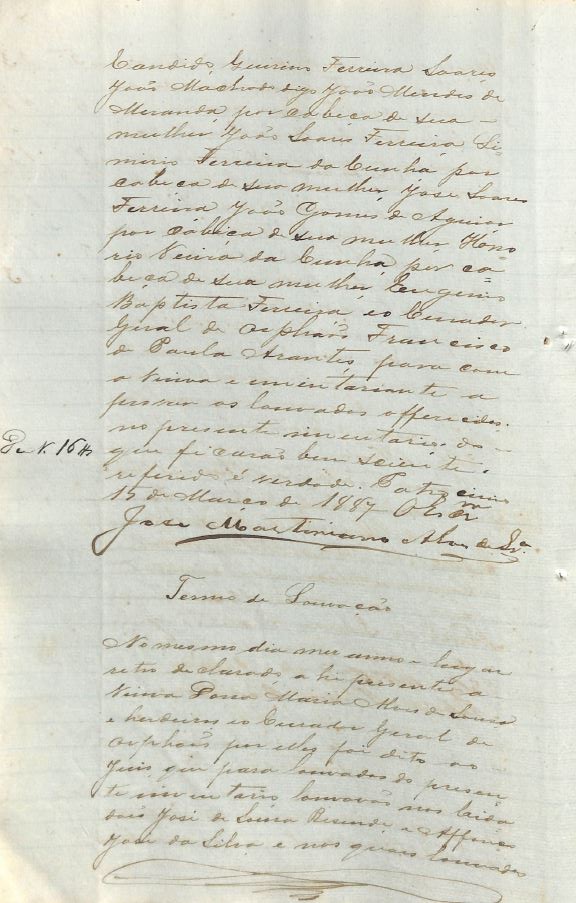 Candido Guirino Ferreira Soares
João Machado digo João Mendes de
Miranda por cabeça de sua
mulher João Soares Ferreira Si-
mirio Ferreira da Cunha por
cabeça de sua mulher José Soares
Ferreira João Gomes de Aguiar
por cabeça de sua mulher Hono
rio Vieira da Cunha por ca=
beça de sua mulher Eugenio
Baptista Ferreira, e o Curador
Geral de orphãos Francisco
de Paula Arantes, para com
a Viuva e inventariante a
os louvados offerecidos
no presente inventario, do
que ficarão bem sciente.
referido é verdade. Patrocinio
15 de Março de 1887 O Escr
José Martiniano Alves de Sza
Termo de Louvação
No mesmo dia mez anno e lugar
retro declarado, ahi presente a
Viuva Dona Maria Alves de Souza
e herdeiros e o Curador Geral de
orphãos por elles foi dito ao
Juis, que para louvados do presen
te inventario louvavão nos Cida
dãos José de Souza Resende e Affonso
José da Silva e nos quais louvados